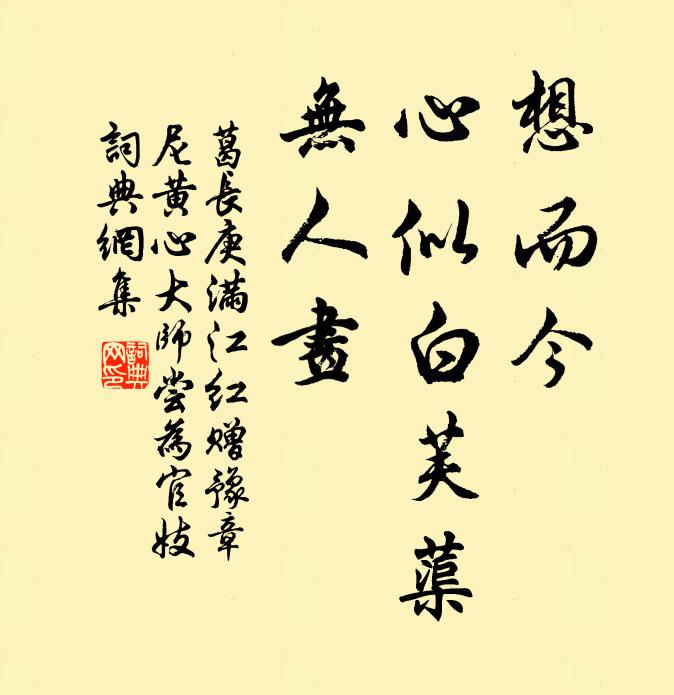 想而今
心似白芙蕖
無人畫
葛長庚滿江紅贈豫章
尼黄心大師嘗為官妓
詞典網集
詞典网印